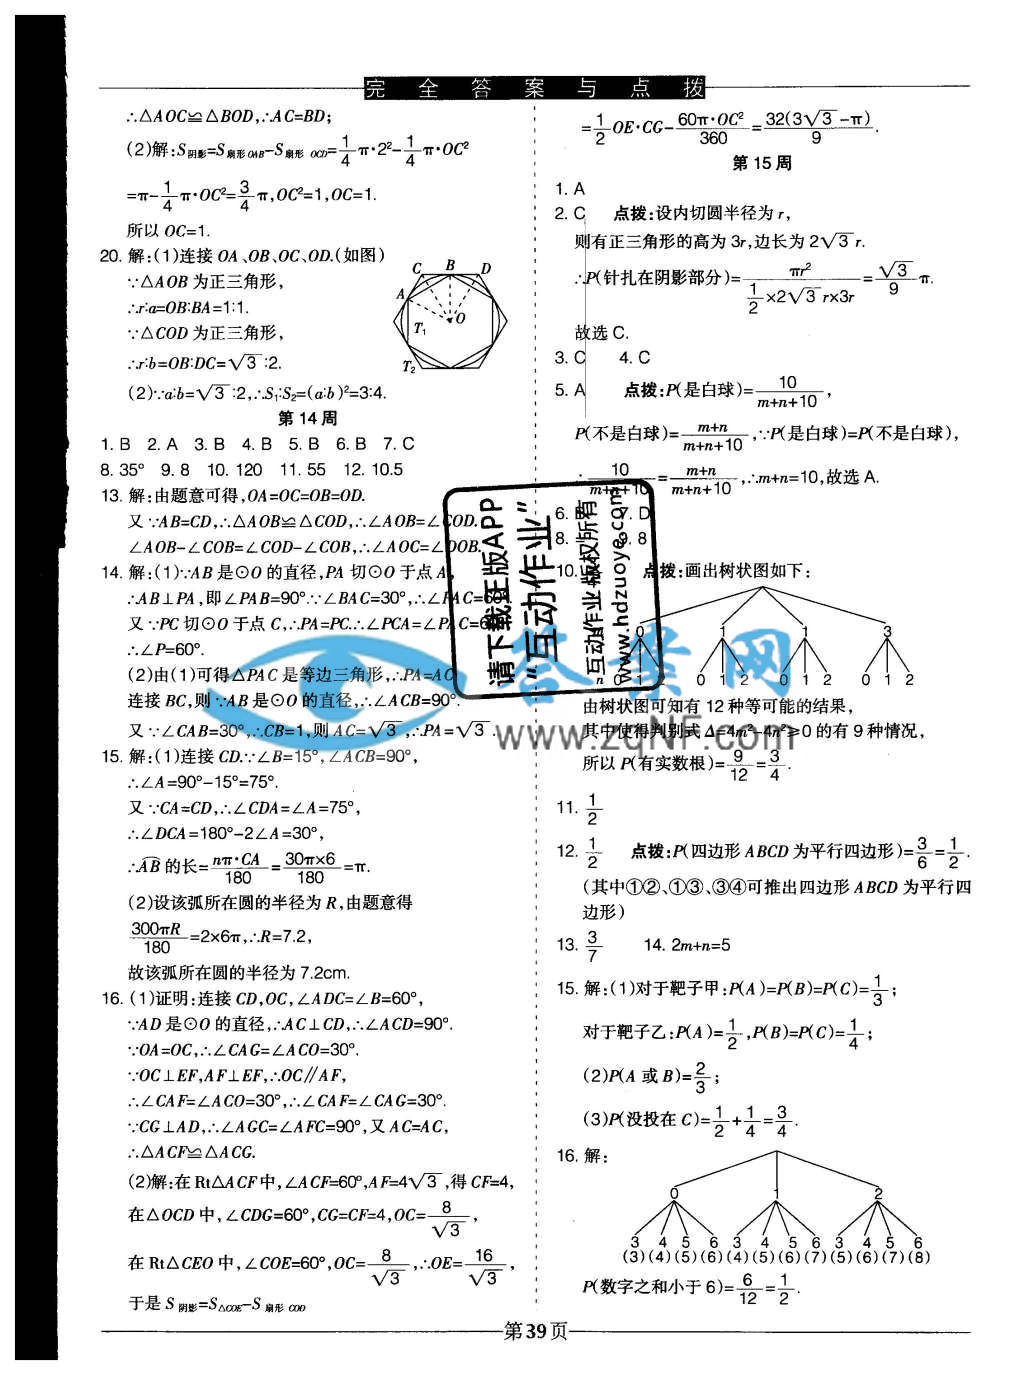 完全答案与点拨
∴△AOC≌△BOD,∴AC=BD;
(2)解:S阴影=S扇形OAB-S扇形OCD=1/4π·2²-1/4π·OC²
=π-1/4π·OC²=3/4π,OC²=1,OC=1.
所以 OC=1.
20. 解:(1)连接 OA、OB、OC、OD.(如图)
∵△AOB 为正三角形,
∴r∶a=OB∶BA=1∶1.
∵△COD 为正三角形,
∴r∶b=OB∶DC=√3∶2.
(2)∵a∶b=√3∶2,∴S₁∶S₂=(a∶b)²=3∶4.
C B D
A
T₁ O
T₂
第 14 周
1. B 2. A 3. B 4. B 5. B 6. B 7. C
8. 35° 9. 8 10. 120 11. 55 12. 10.5
13. 解:由题意可得,OA=OC=OB=OD.
又∵AB=CD,∴△AOB≌△COD,∴∠AOB=∠COD.
∠AOB-∠COB=∠COD-∠COB,∴∠AOC=∠DOB.
14. 解:(1)∵AB 是⊙O 的直径,PA 切⊙O 于点 A,
∴AB⊥PA,即∠PAB=90°.∵∠BAC=30°,∴∠PAC=60°.
又∵PC 切⊙O 于点 C,∴PA=PC.∴∠PCA=∠PAC=60°
∴∠P=60°.
(2)由(1)可得△PAC 是等边三角形,∴PA=AC
连接 BC,则∵AB 是⊙O 的直径,∴∠ACB=90°.
又∵∠CAB=30°,∴CB=1,则 AC=√3,∴PA=√3.
15. 解:(1)连接 CD.∵∠B=15°,∠ACB=90°,
∴∠A=90°-15°=75°.
又∵CA=CD,∴∠CDA=∠A=75°,
∴∠DCA=180°-2∠A=30°,
∴AB的长=nπ·CA/180=30π×6/180=π.
(2)设该弧所在圆的半径为 R,由题意得
300πR/180=2×6π,∴R=7.2,
故该弧所在圆的半径为 7.2cm.
16. (1)证明:连接 CD,OC,∠ADC=∠B=60°,
∵AD 是⊙O 的直径,∴AC⊥CD,∴∠ACD=90°.
∵OA=OC,∴∠CAG=∠ACO=30°.
∵OC⊥EF,AF⊥EF,∴OC∥AF,
∴∠CAF=∠ACO=30°,∴∠CAF=∠CAG=30°.
∵CG⊥AD,∴∠AGC=∠AFC=90°,又 AC=AC,
∴△ACF≌△ACG.
(2)解:在 Rt△ACF 中,∠ACF=60°,AF=4√3,得 CF=4,
在△OCD 中,∠CDG=60°,CG=CF=4,OC=8/√3,
在 Rt△CEO 中,∠COE=60°,OC=8/√3,∴OE=16/√3,
于是 S阴影=S△COE-S扇形COD
=1/2OE·CG-60π·OC²/360=32(3√3-π)/9.
第 15 周
1. A
2. C 点拨:设内切圆半径为 r,
则有正三角形的高为 3r,边长为 2√3r.
∴P(针扎在阴影部分)=πr²/(1/2×2√3r×3r)=√3/9π.
故选 C.
3. C 4. C
5. A 点拨:P(是白球)=10/(m+n+10),
P(不是白球)=(m+n)/(m+n+10),∵P(是白球)=P(不是白球),
∴10/(m+n+10)=(m+n)/(m+n+10),∴m+n=10,故选 A.
6. 7. D
8. 9. 8
10. 点拨:画出树状图如下:
0 1 1 3
0 1 2 0 1 2 0 1 2 0 1 2
由树状图可知有 12 种等可能的结果,
其中使得判别式 Δ=4m²-4n²≥0 的有 9 种情况,
所以 P(有实数根)=9/12=3/4.
11. 1/2
12. 1/2 点拨:P(四边形 ABCD 为平行四边形)=3/6=1/2.
(其中①②、①③、③④可推出四边形 ABCD 为平行四
边形)
13. 3/7 14. 2m+n=5
15. 解:(1)对于靶子甲:P(A)=P(B)=P(C)=1/3;
对于靶子乙:P(A)=1/2,P(B)=P(C)=1/4;
(2)P(A 或 B)=2/3;
(3)P(没投在 C)=1/2+1/4=3/4.
16. 解:
0 1 2
3 4 5 6 3 4 5 6 3 4 5 6
(3)(4)(5)(6)(4)(5)(6)(7)(5)(6)(7)(8)
P(数字之和小于 6)=6/12=1/2.
请下载正版APP
“互动作业”
“互动作业”版权所有
www.hdzuoye.com
答业网
www.zqNF.com
第 39 页